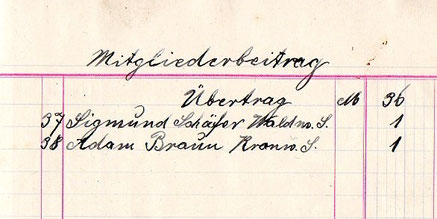 Mitgliederbeitrag
Übertrag M 36
37 Sigmund Schäfer Waldw. S. 1
38 Adam Braun Kronw. S. 1